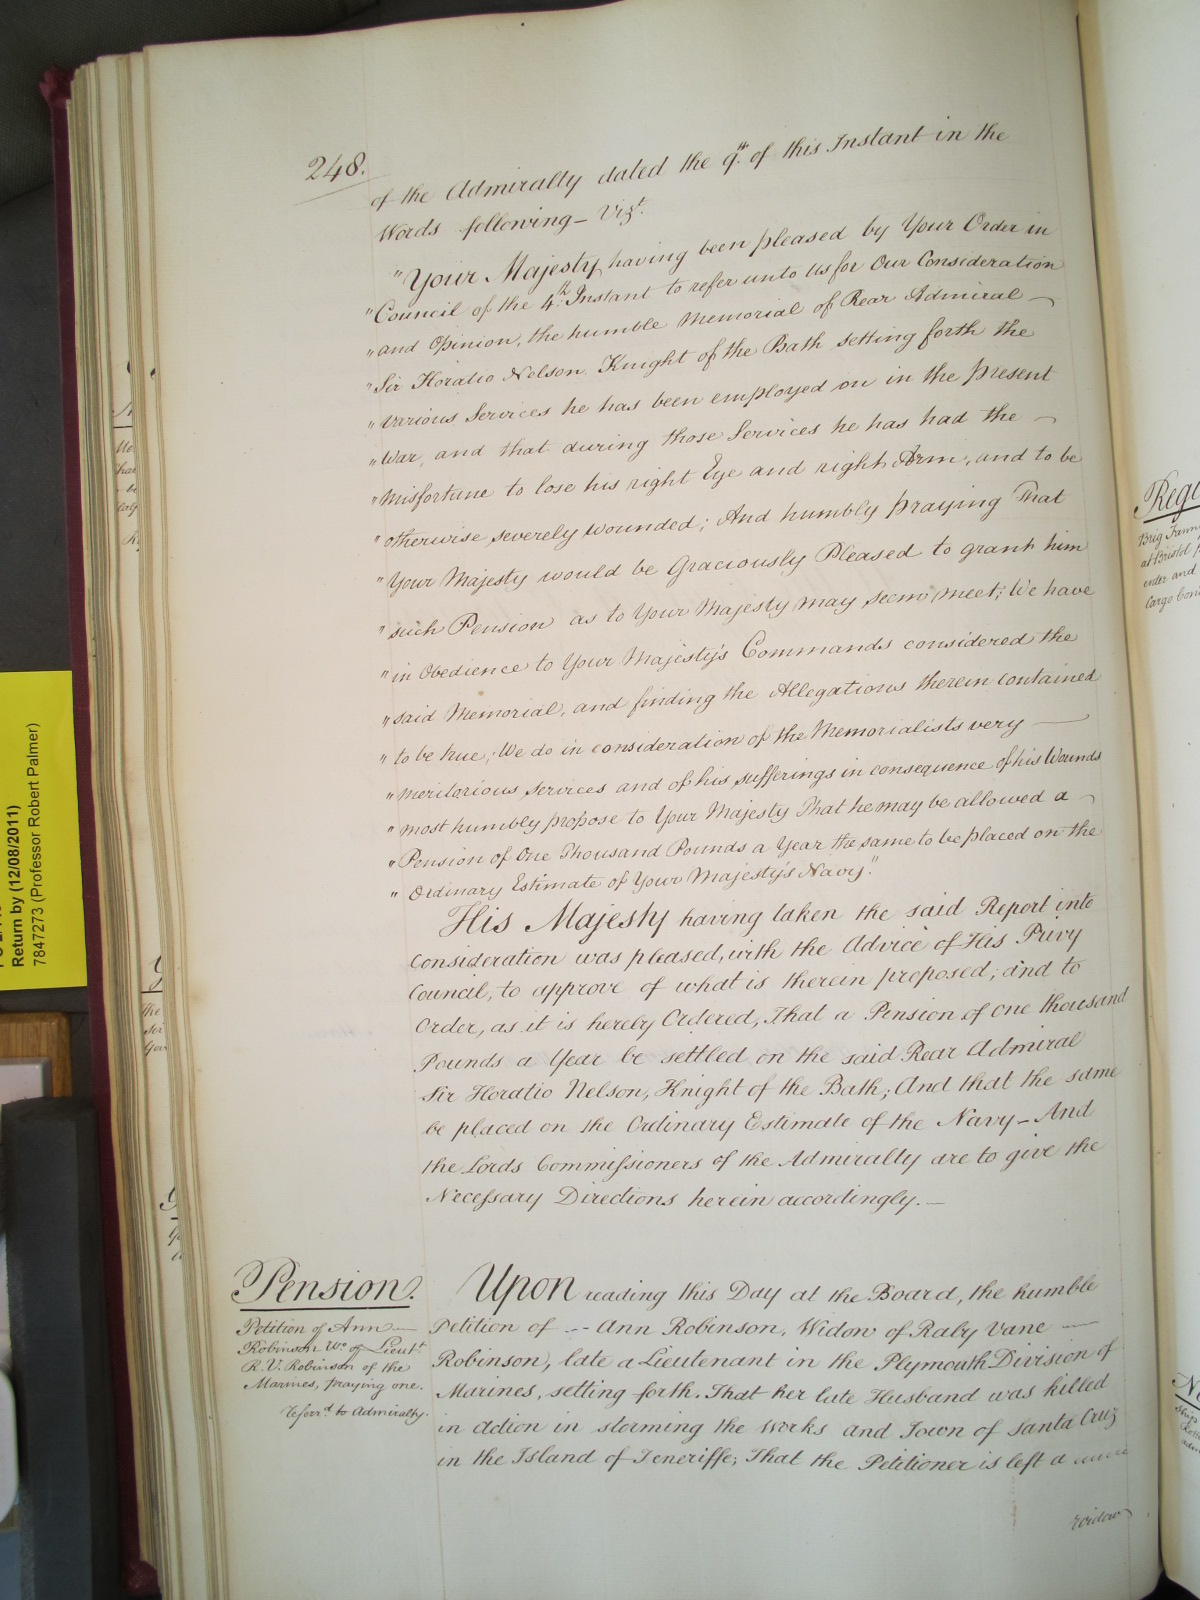 248.
of the Admiralty dated the 9th. of this Instant in the
Words following – Vizt.
"Your Majesty having been pleased by Your Order in
"Council of the 4th. Instant to refer unto Us for Our Consideration
"and Opinion, the humble Memorial of Rear Admiral –
"Sir Horatio Nelson Knight of the Bath setting forth the
"various Services he has been employed on in the present
"War, and that during those Services he has had the –
"misfortune to lose his right Eye and right Arm, and to be
"otherwise severely wounded; And humbly praying That
"Your Majesty would be Graciously Pleased to grant him
"such Pension as to Your Majesty may seem meet; We have
"in Obedience to Your Majesty's Commands considered the
"said Memorial, and finding the Allegations therein contained
"to be true; We do in consideration of the Memorialists very –
"meritorious services and of his sufferings in consequence of his Wounds
"most humbly propose to Your Majesty That he may be allowed a –
"Pension of One Thousand Pounds a Year the same to be placed on the
"Ordinary Estimate of Your Majesty's Navy."
His Majesty having taken the said Report into
consideration was pleased, with the Advice of His Privy
Council, to approve of what is therein proposed; and to
Order, as it is hereby Ordered, That a Pension of one thousand
Pounds a Year be settled on the said Rear Admiral
Sir Horatio Nelson, Knight of the Bath; And that the same
be placed on the Ordinary Estimate of the Navy – And
the Lords Commissioners of the Admiralty are to give the
Necessary Directions herein accordingly. –
Pension.
Petition of Ann –
Robinson Wo. of Lieutt.
R. V. Robinson of the
Marines, praying one.
Referrd. to Admiralty.
Upon reading this Day at the Board, the humble
Petition of -- Ann Robinson, Widow of Raby Vane –
Robinson, late a Lieutenant in the Plymouth Division of
Marines, setting forth. That her late Husband was killed
in Action in storming the Works and Town of Santa Cruz
in the Island of Teneriffe; That the Petitioner is left a
Widow
Return by (12/08/2011)
7847273 (Professor Robert Palmer)
Brig Fanny
at Bristol
enter and